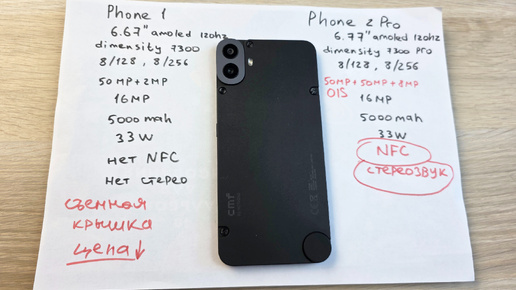 Phone 1
6.67" amoled 120hz
dimensity 7300
8/128, 8/256
50MP+2MP
16MP
5000mah
33W
нет NFC
нет стерео
съемная
крышка
цена↓
cmf
Phone 2 Pro
6.77" amoled 120hz
dimensity 7300 Pro
8/128, 8/256
50MP+50MP+8MP
OIS
16MP
5000mah
33W
NFC
стереозвук